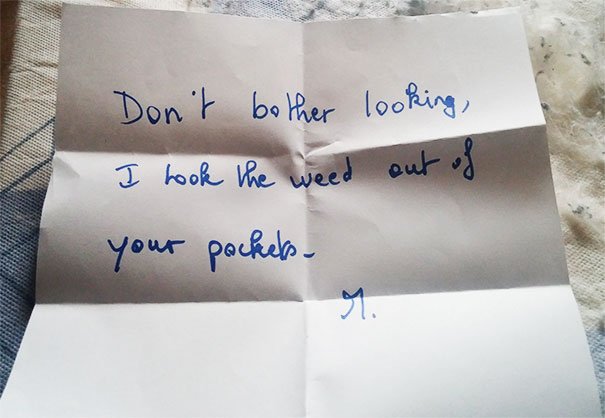 Don't bother looking,
I took the weed out of
your pockets-
M.